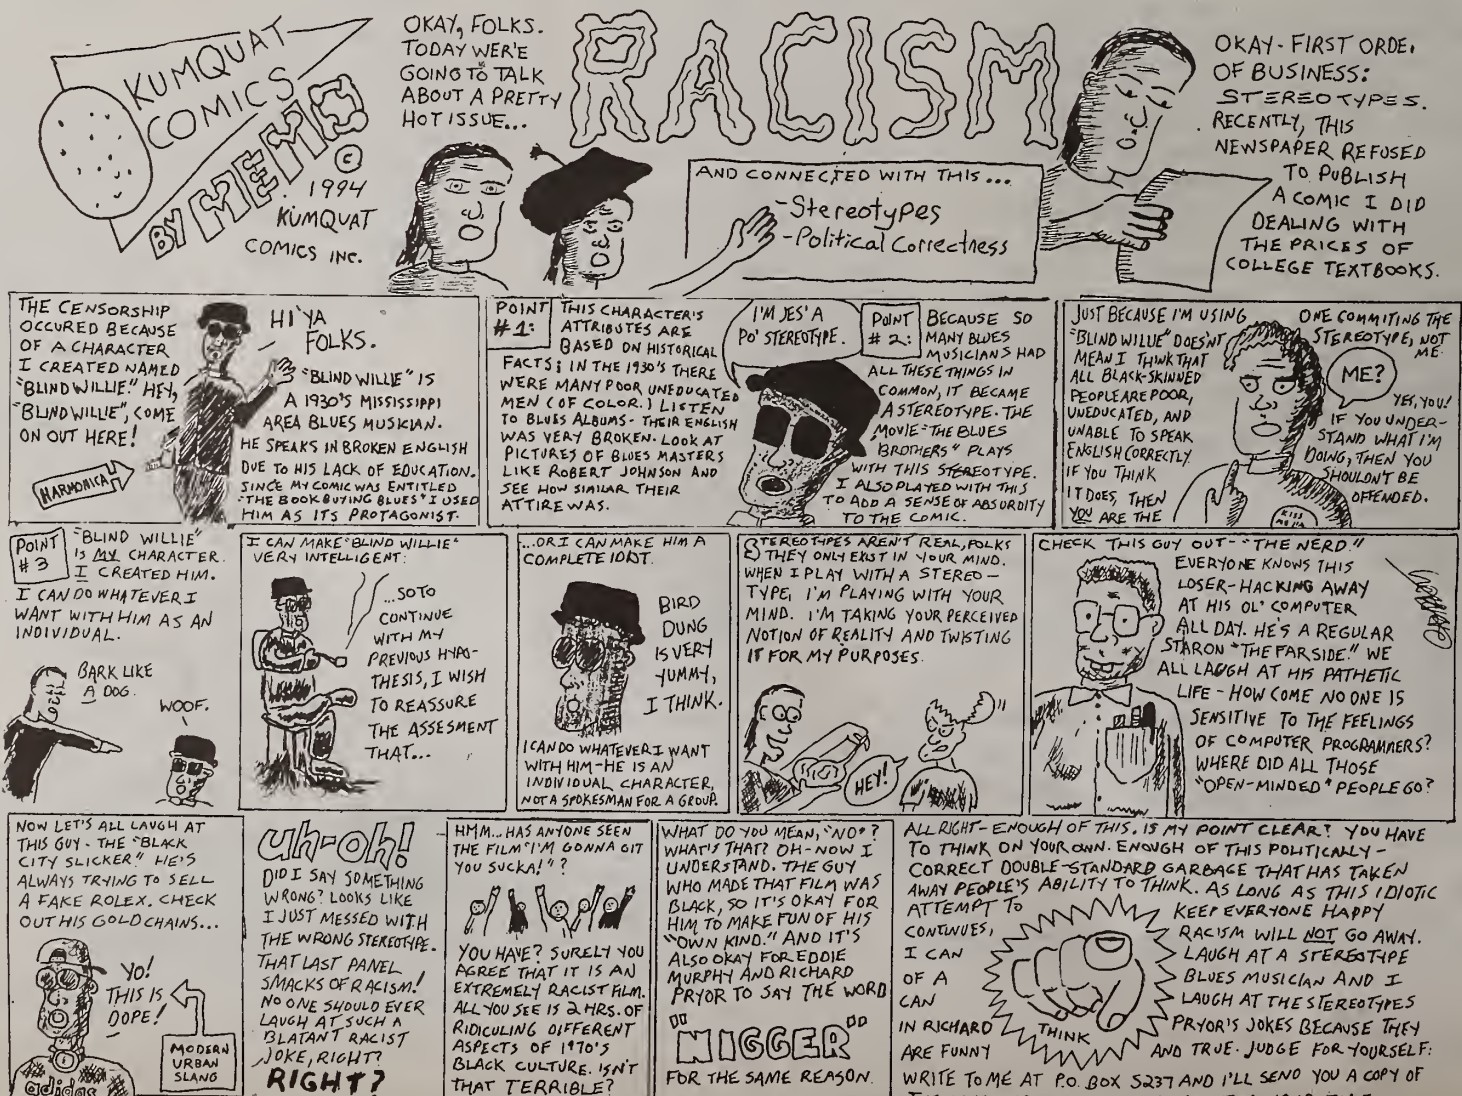 KUMQUAT
COMICS
BY MEMO
©
1994
KUMQUAT
COMICS INC.
OKAY, FOLKS.
TODAY WER'E
GOING TO TALK
ABOUT A PRETTY
HOT ISSUE...
RACISM
AND CONNECTED WITH THIS...
-Stereotypes
-Political Correctness
OKAY- FIRST ORDE
OF BUSINESS:
STEREOTYPES.
RECENTLY, THIS
NEWSPAPER REFUSED
TO PUBLISH
A COMIC I DID
DEALING WITH
THE PRICES OF
COLLEGE TEXTBOOKS.
THE CENSORSHIP
OCCURED BECAUSE
OF A CHARACTER
I CREATED NAMED
"BLIND WILLIE." HEY,
"BLIND WILLIE", COME
ON OUT HERE!
HARMONICA
HI'YA
FOLKS.
"BLIND WILLIE" IS
A 1930'S MISSISSIPPI
AREA BLUES MUSICIAN.
HE SPEAKS IN BROKEN ENGLISH
DUE TO HIS LACK OF EDUCATION.
SINCE MY COMIC WAS ENTITLED
"THE BOOK BUYING BLUES" I USED
HIM AS ITS PROTAGONIST.
POINT
#1:
THIS CHARACTER'S
ATTRIBUTES ARE
BASED ON HISTORICAL
FACTS; IN THE 1930'S THERE
WERE MANY POOR UNEDUCATED
MEN (OF COLOR.) LISTEN
TO BLUES ALBUMS- THEIR ENGLISH
WAS VERY BROKEN. LOOK AT
PICTURES OF BLUES MASTERS
LIKE ROBERT JOHNSON AND
SEE HOW SIMILAR THEIR
ATTIRE WAS.
I'M JES' A
PO' STEREOTYPE.
POINT
#2:
BECAUSE SO
MANY BLUES
MUSICIANS HAD
ALL THESE THINGS IN
COMMON, IT BECAME
A STEREOTYPE. THE
MOVIE "THE BLUES
BROTHERS" PLAYS
WITH THIS STEREOTYPE.
I ALSO PLAYED WITH THIS
TO ADD A SENSE OF ABSURDITY
TO THE COMIC.
JUST BECAUSE I'M USING
"BLIND WILLIE" DOESN'T
MEAN I THINK THAT
ALL BLACK-SKINNED
PEOPLE ARE POOR,
UNEDUCATED, AND
UNABLE TO SPEAK
ENGLISH CORRECTLY.
IF YOU THINK
IT DOES, THEN
YOU ARE THE
ONE COMMITING THE
STEREOTYPE, NOT
ME.
ME?
YES, YOU!
IF YOU UNDER-
STAND WHAT I'M
DOING, THEN YOU
SHOULDN'T BE
OFFENDED.
KISS
ME
POINT
#3
"BLIND WILLIE"
IS MY CHARACTER.
I CREATED HIM.
I CAN DO WHATEVER I
WANT WITH HIM AS AN
INDIVIDUAL.
BARK LIKE
A DOG.
WOOF.
I CAN MAKE "BLIND WILLIE"
VERY INTELLIGENT:
...SO TO
CONTINUE
WITH MY
PREVIOUS HYPO-
THESIS, I WISH
TO REASSURE
THE ASSESMENT
THAT...
...OR I CAN MAKE HIM A
COMPLETE IDIOT.
BIRD
DUNG
IS VERY
YUMMY,
I THINK.
I CAN DO WHATEVER I WANT
WITH HIM-HE IS AN
INDIVIDUAL CHARACTER,
NOT A SPOKESMAN FOR A GROUP.
STEREOTYPES AREN'T REAL, FOLKS
THEY ONLY EXIST IN YOUR MIND.
WHEN I PLAY WITH A STEREO-
TYPE, I'M PLAYING WITH YOUR
MIND. I'M TAKING YOUR PERCEIVED
NOTION OF REALITY AND TWISTING
IT FOR MY PURPOSES.
HEY!
CHECK THIS GUY OUT-"THE NERD."
EVERYONE KNOWS THIS
LOSER-HACKING AWAY
AT HIS OL' COMPUTER
ALL DAY. HE'S A REGULAR
STAR ON "THE FARSIDE." WE
ALL LAUGH AT HIS PATHETIC
LIFE - HOW COME NO ONE IS
SENSITIVE TO THE FEELINGS
OF COMPUTER PROGRAMMERS?
WHERE DID ALL THOSE
"OPEN-MINDED" PEOPLE GO?
NOW LET'S ALL LAUGH AT
THIS GUY - THE "BLACK
CITY SLICKER." HE'S
ALWAYS TRYING TO SELL
A FAKE ROLEX. CHECK
OUT HIS GOLD CHAINS...
YO!
THIS IS
DOPE!
MODERN
URBAN
SLANG
adidas
uh-oh!
DID I SAY SOMETHING
WRONG? LOOKS LIKE
I JUST MESSED WITH
THE WRONG STEREOTYPE.
THAT LAST PANEL
SMACKS OF RACISM!
NO ONE SHOULD EVER
LAUGH AT SUCH A
BLATANT RACIST
JOKE, RIGHT?
RIGHT?
HMM... HAS ANYONE SEEN
THE FILM "I'M GONNA GIT
YOU SUCKA!"?
YOU HAVE? SURELY YOU
AGREE THAT IT IS AN
EXTREMELY RACIST FILM.
ALL YOU SEE IS 2 HRS. OF
RIDICULING DIFFERENT
ASPECTS OF 1970'S
BLACK CULTURE. ISN'T
THAT TERRIBLE?
WHAT DO YOU MEAN, "NO"?
WHAT'S THAT? OH-NOW I
UNDERSTAND. THE GUY
WHO MADE THAT FILM WAS
BLACK, SO IT'S OKAY FOR
HIM TO MAKE FUN OF HIS
"OWN KIND." AND IT'S
ALSO OKAY FOR EDDIE
MURPHY AND RICHARD
PRYOR TO SAY THE WORD
"NIGGER"
FOR THE SAME REASON.
ALL RIGHT- ENOUGH OF THIS. IS MY POINT CLEAR? YOU HAVE
TO THINK ON YOUR OWN. ENOUGH OF THIS POLITICALLY-
CORRECT DOUBLE-STANDARD GARBAGE THAT HAS TAKEN
AWAY PEOPLE'S ABILITY TO THINK. AS LONG AS THIS IDIOTIC
ATTEMPT TO KEEP EVERYONE HAPPY
CONTINUES, RACISM WILL NOT GO AWAY.
I CAN LAUGH AT A STEREOTYPE
OF A BLUES MUSICIAN AND I
CAN LAUGH AT THE STEREOTYPES
IN RICHARD PRYOR'S JOKES BECAUSE THEY
ARE FUNNY AND TRUE. JUDGE FOR YOURSELF:
THINK
WRITE TO ME AT P.O. BOX 5237 AND I'LL SEND YOU A COPY OF